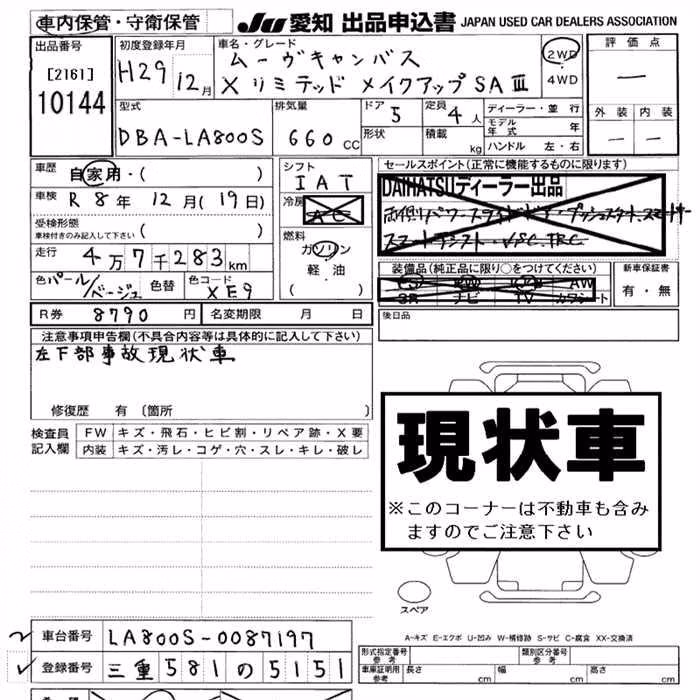 車内保管・守衛保管
JU 愛知 出品申込書 JAPAN USED CAR DEALERS ASSOCIATION
出品番号
[2161]
10144
初度登録年月
H29 12月
車名・グレード
ムーヴキャンバス
X リミテッド メイクアップSAⅢ
2WD
4WD
評価点
―
外装 内装
― ―
型式
DBA-LA800S
排気量
660 CC
ドア
5
形状
定員
4人
積載 kg
ディーラー・並行
モデル年式 年
ハンドル 左・右
車歴 自家用・( )
車検 R8年 12月(19日)
受検形態
車検付きのみ記入して下さい ( )
走行 4万7千283km
色 パール/ベージュ 色替 色コード XE9
シフト
IAT
冷房
AC
燃料
ガソリン
軽油
( )
セールスポイント(正常に機能するものに限ります)
DAIHATSUディーラー出品
両側パワースライドドア・プッシュスタート、スマートキー
スマートアシスト・VSC.TRC
装備品(純正品に限り○をつけてください)
PS PW AW
SR ナビ TV カワシート
新車保証書
有・無
R券 8790 円 名変期限 月 日
後日品
注意事項申告欄(不具合内容等は具体的に記入して下さい)
左下部事故現状車
修復歴 有 〔箇所 〕
検査員記入欄
FW キズ・飛石・ヒビ割・リペア跡・X要
内装 キズ・汚レ・コゲ・穴・スレ・キレ・破レ
現状車
※このコーナーは不動車も含み
ますのでご注意下さい
スペア
A-キズ E-エクボ U-凹み W-補修跡 S-サビ C-腐食 XX-交換済
車台番号 LA800S-0087197
登録番号 三重 581 の 5151
形式指定番号 参考
類別区分番号 参考
車庫証明用 参考 長さ cm 幅 cm 高さ cm